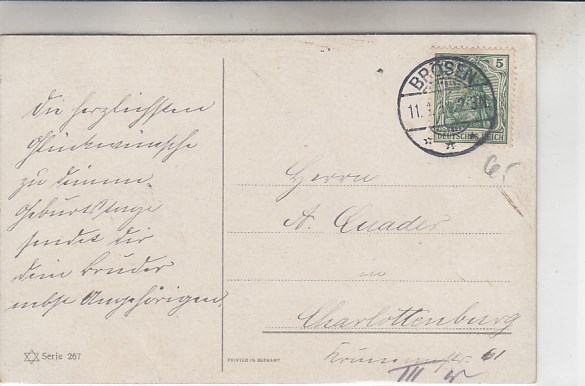 Die herzlichsten
Glückwünsche
zu Deinem
Geburtstage
sendet Dir
Dein Bruder
nebst Angehörigen.
Serie 267
BRÖSEN
11.
5
DEUTSCHES REICH
6,-
Herrn
A. Quader
in
Charlottenburg
61
III
PRINTED IN GERMANY